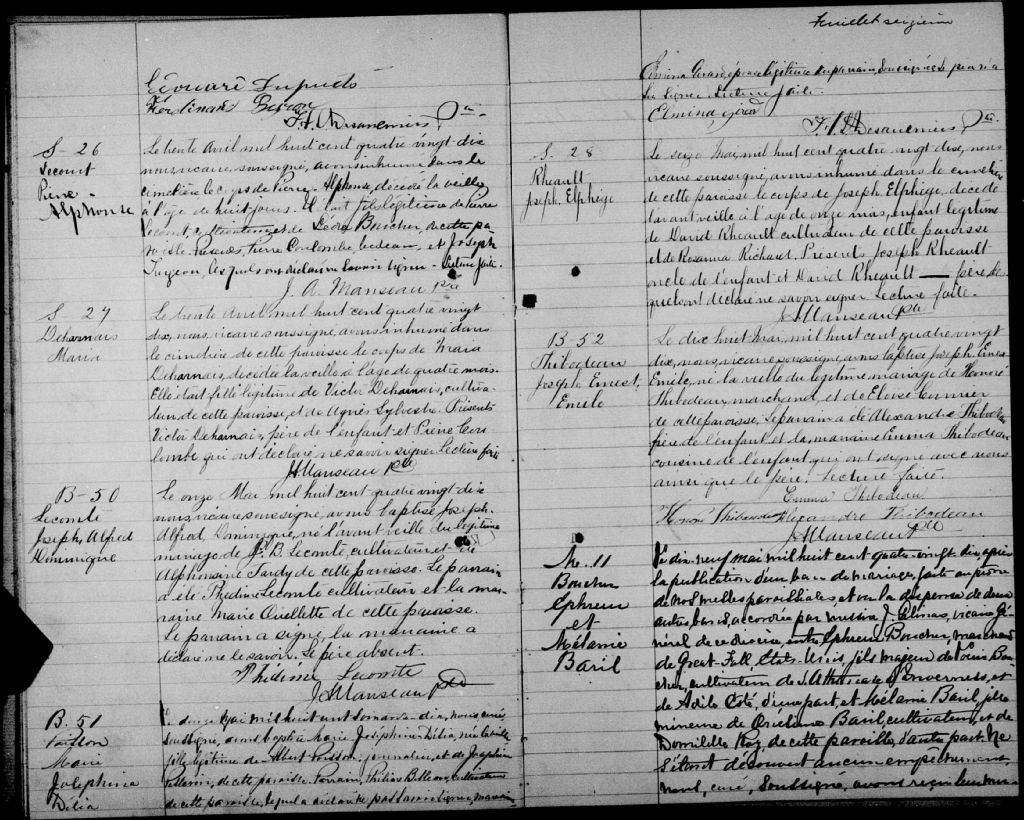 Edouard Dupuis
Ferdinand
F. A. Desauniers, Ptre
S - 26
Lecomt
Pierre -
Alphonse
Le trente Avril mil huit cent quatre vingt-dix
nous, vicaire, soussigné, avons inhumé dans le
cimetière le corps de Pierre - Alphonse, décédé la veille
à l'age de huit jours. Il était fils légitime de Pierre
Lecomt, et de Léda Boucher, de cette pa-
roisse. Présents, Pierre Coulombe bedeau, et Joseph
Turgeon lesquels ont déclaré ne savoir signer - Lecture faite.
J. A. Manseau Ptre
S - 27
Deharnais
Maria
Le trente Avril mil huit cent quatre vingt
dix, nous, vicaire soussigné, avons inhumé dans
le cimetière de cette paroisse le corps de Maria
Deharnais, décédée la veille à l'age de quatre mois.
Elle était fille légitime de Victor Deharnais, cultiva-
teur, de cette paroisse, et de Agnès Sylvestre. Présents
Victor Deharnais, père de l'enfant et Pierre Cou-
lombe qui ont déclaré ne savoir signer Lecture faite
JA Manseau Ptre
B - 50
Lecomte
Joseph, Alfred
Dominique
Le onze Mai mil huit cent quatre vingt-dix
nous, vicaire, soussigné, avons baptisé Joseph-
Alfred Dominique, né l'avant veille du légitime
mariage de B. Lecomte, cultivateur et de
Alphonsine Tardy de cette paroisse. Le parrain
a été Phidime Lecomte cultivateur et la mar-
raine Marie Ouellette de cette paroisse.
Le parrain a signé, la marraine a
déclaré ne le savoir. Le père absent.
Phidime Lecomte
JA Manseau Ptre
B. 51
Poisson
Marie
Joséphine
Délia
Le douze Mai mil huit cent soixante-dix, nous curé
soussigné, avons baptisé Marie Joséphine-Délia, née la veille
fille légitime de Albert Poisson, journalier, et de Joséphine
Pellerin, de cette paroisse. Parrain, Philias cultivateur
de cette paroisse, lequel a déclaré pas savoir signer, marraine
Feuillet seizième
Elmina Girard épouse légitime du parrain, soussignée le père n'a
su signer Lecture faite.
Elmina Girard
F. A. Desauniers, Ptre
S. 28
Rheault
Joseph, Elphège
Le seize Mai, mil huit cent quatre vingt dix, nous
vicaire soussigné, avons inhumé dans le cimetière
de cette paroisse le corps de Joseph Elphège, décédé
l'avant veille à l'age de onze mois, enfant légitime
de David Rheault cultivateur de cette paroisse
et de Rosanna Richard. Présents Joseph Rheault
oncle de l'enfant et David Rheault — père, les-
quels ont déclaré ne savoir signer Lecture faite.
JA Manseau Ptre
B - 52
Thibodeau
Joseph Ernest,
Emile
Le dix huit Mai, mil huit cent quatre vingt
dix, nous, vicaire soussigné, avons baptisé Joseph, Ernest
Emile, né la veille du légitime mariage de Honoré
Thibodeau, marchand, et de Eloïse Cormier
de cette paroisse. Le parrain a été Alexandre Thibodeau
père de l'enfant et la marraine Emma Thibodeau
cousine de l'enfant qui ont signé avec nous
ainsi que le père. Lecture faite.
Emma Thibodeau
Honoré Thibaudeau Alexandre Thibodeau
JA Manseau Ptre
M. 11
Boucher
Ephrem
et
Mélanie
Baril
Le dix-neuf mai mil huit cent quatre-vingt dix, après
la publication d'un ban de mariage, faite au prône
de nos messes paroissiales et vu la dispense de deux
autres bans, accordée par messire J. vicaire Gé-
néral de ce diocèse, entre Ephrem Boucher, marchand
de Great-Fall, Etats-Unis, fils majeur de Louis Bou-
cher, cultivateur de d'Inverness, et
de Adile Coté, d'une part, et Mélanie Baril, fille
mineure de Onésime Baril, cultivateur, et de
Domitilde Roy, de cette paroisse, d'autre part. Ne
s'étant découvert aucun empêchement,
nous, curé, soussigné, avons reçu leur mu-